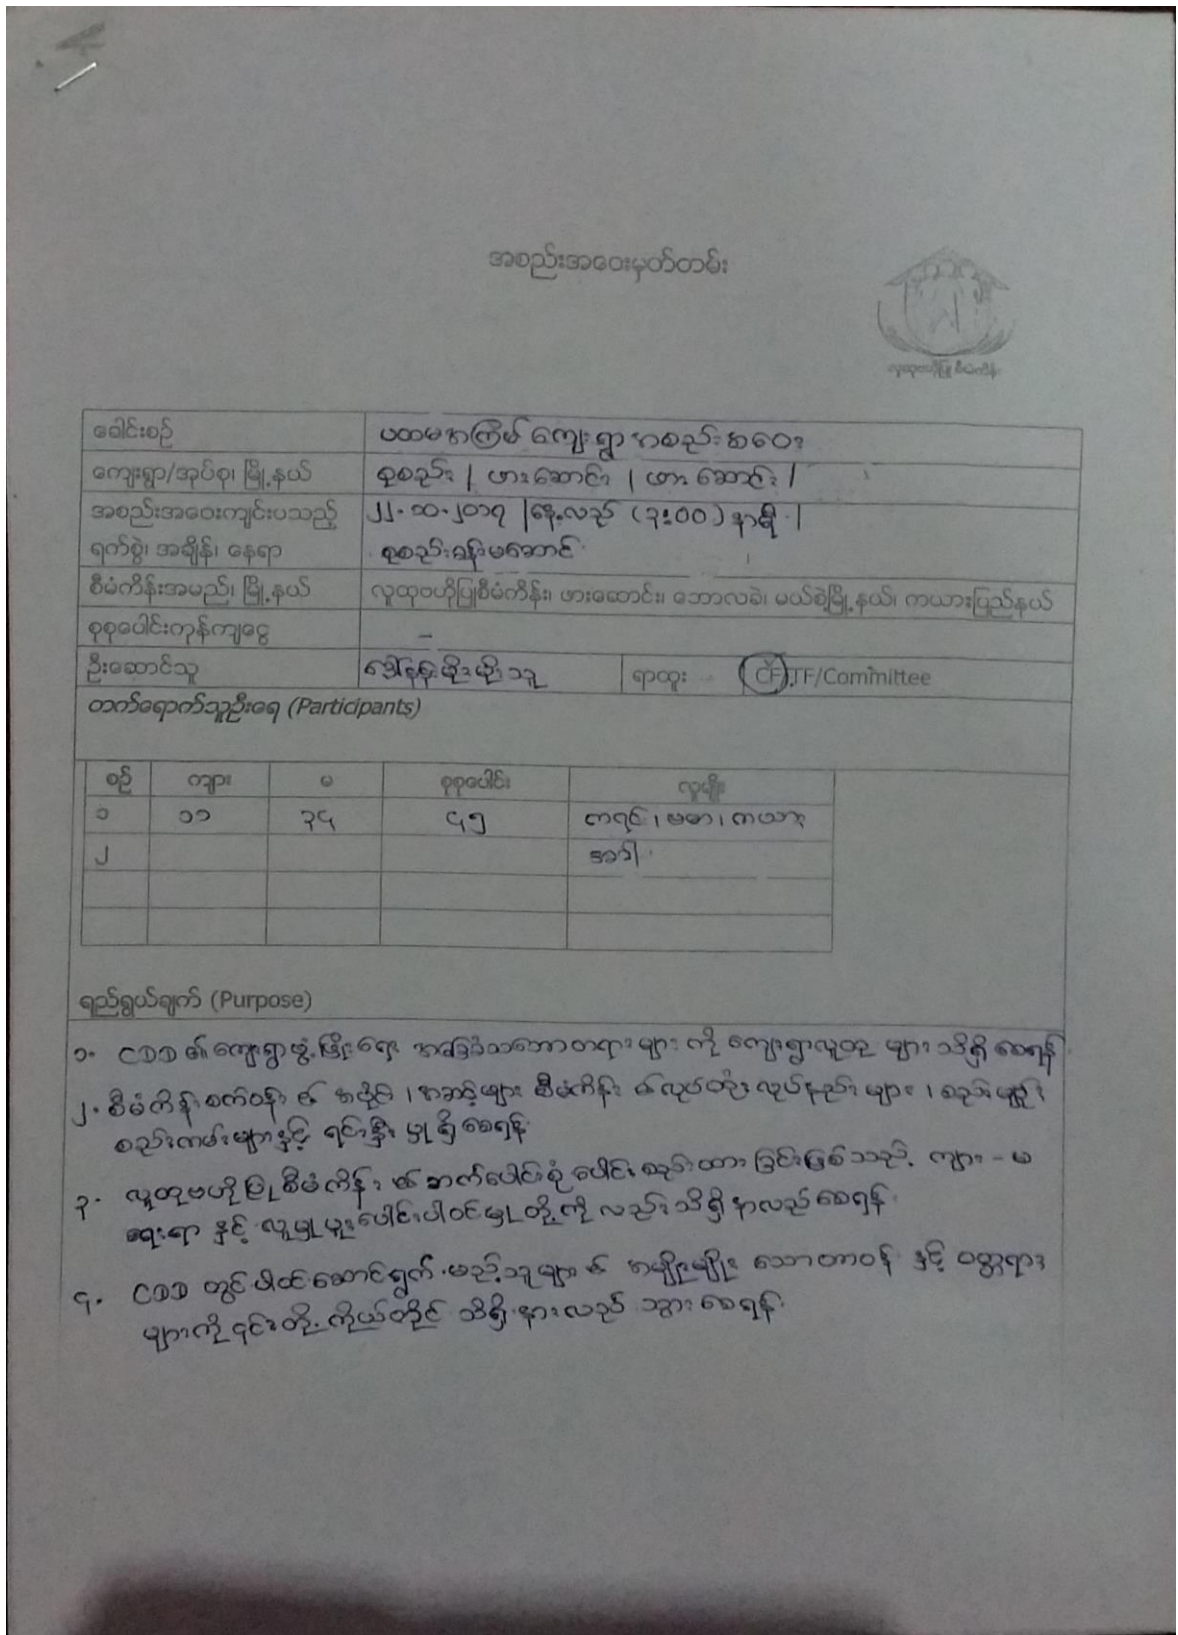 အစည်းအဝေးမှတ်တမ်း
လူထုဗဟိုပြုစီမံကိန်း
ခေါင်းစဉ် ပထမအကြိမ် ကျေးရွာ အစည်းအဝေး
ကျေးရွာ/အုပ်စု၊ မြို့နယ် စုစည်း / ဖားဆောင်း / ဖားဆောင်း /
အစည်းအဝေးကျင်းပသည့် ၂၂.၁၀.၂၀၁၇ /နေ့လည် (၃:၀၀) နာရီ /
ရက်စွဲ၊ အချိန်၊ နေရာ စုစည်းခန်းမဆောင်
စီမံကိန်းအမည်၊ မြို့နယ် လူထုဗဟိုပြုစီမံကိန်း၊ ဖားဆောင်း၊ ဘောလခဲ၊ မယ်စဲ့မြို့နယ်၊ ကယားပြည်နယ်
စုစုပေါင်းကုန်ကျငွေ –
ဦးဆောင်သူ ဒေါ်နန်းမိုးမိုးသူ ရာထူး CF,TF/Committee
တက်ရောက်သူဦးရေ (Participants)
စဉ် ကျား မ စုစုပေါင်း လူမျိုး
၁ ၁၁ ၃၄ ၄၅ ကရင်၊ ဗမာ၊ ကယား
၂
ရည်ရွယ်ချက် (Purpose)
၁. CDD ၏ ကျေးရွာဖွံ့ဖြိုးရေး အခြေခံသဘောတရားများ ကို ကျေးရွာလူထု များ သိရှိ စေရန်
၂. စီမံကိန်းစက်ဝန်း ၏ အပိုင်း၊ အဆင့်များ စီမံကိန်း ၏လုပ်ထုံး လုပ်နည်း များ၊ စည်းမျဉ်း
စည်းကမ်းများနှင့် ရင်းနှီး မှု ရှိ စေရန်
၃. လူထုဗဟိုပြု စီမံကိန်း ၏ ဆက်ပေါင်းစုံ ပေါင်းစည်းထားခြင်းဖြစ်သည့် ကျား - မ
ရေးရာ နှင့် လူမှု ပူးပေါင်းပါဝင်မှု တို့ကို လည်း သိရှိ နာလည် စေရန်
၄. CDD တွင် ပါဝင်ဆောင်ရွက် မည့်သူများ ၏ အမျိုးမျိုး သောတာဝန် နှင့် ဝတ္တရား
များကို ၎င်းတို့ ကိုယ်တိုင် သိရှိ နားလည် သွား စေရန်